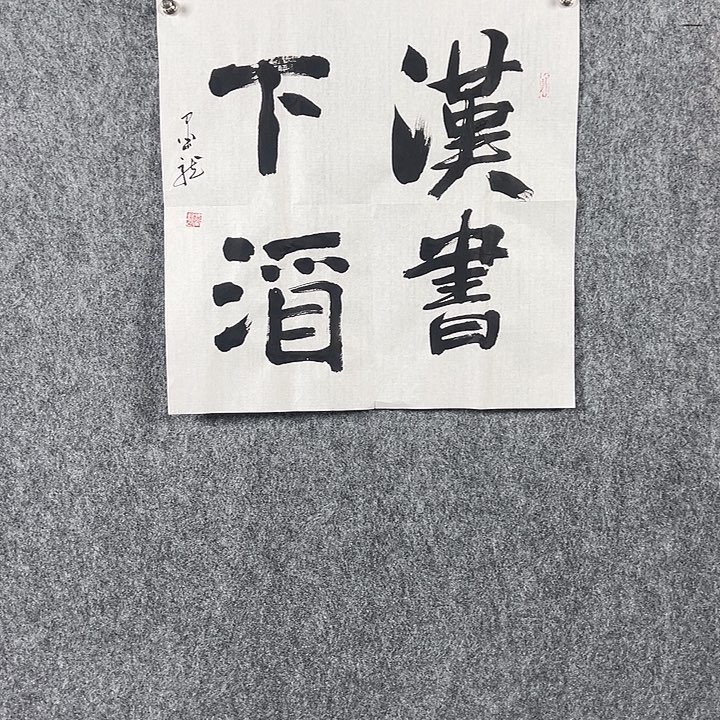 漢書
下酒